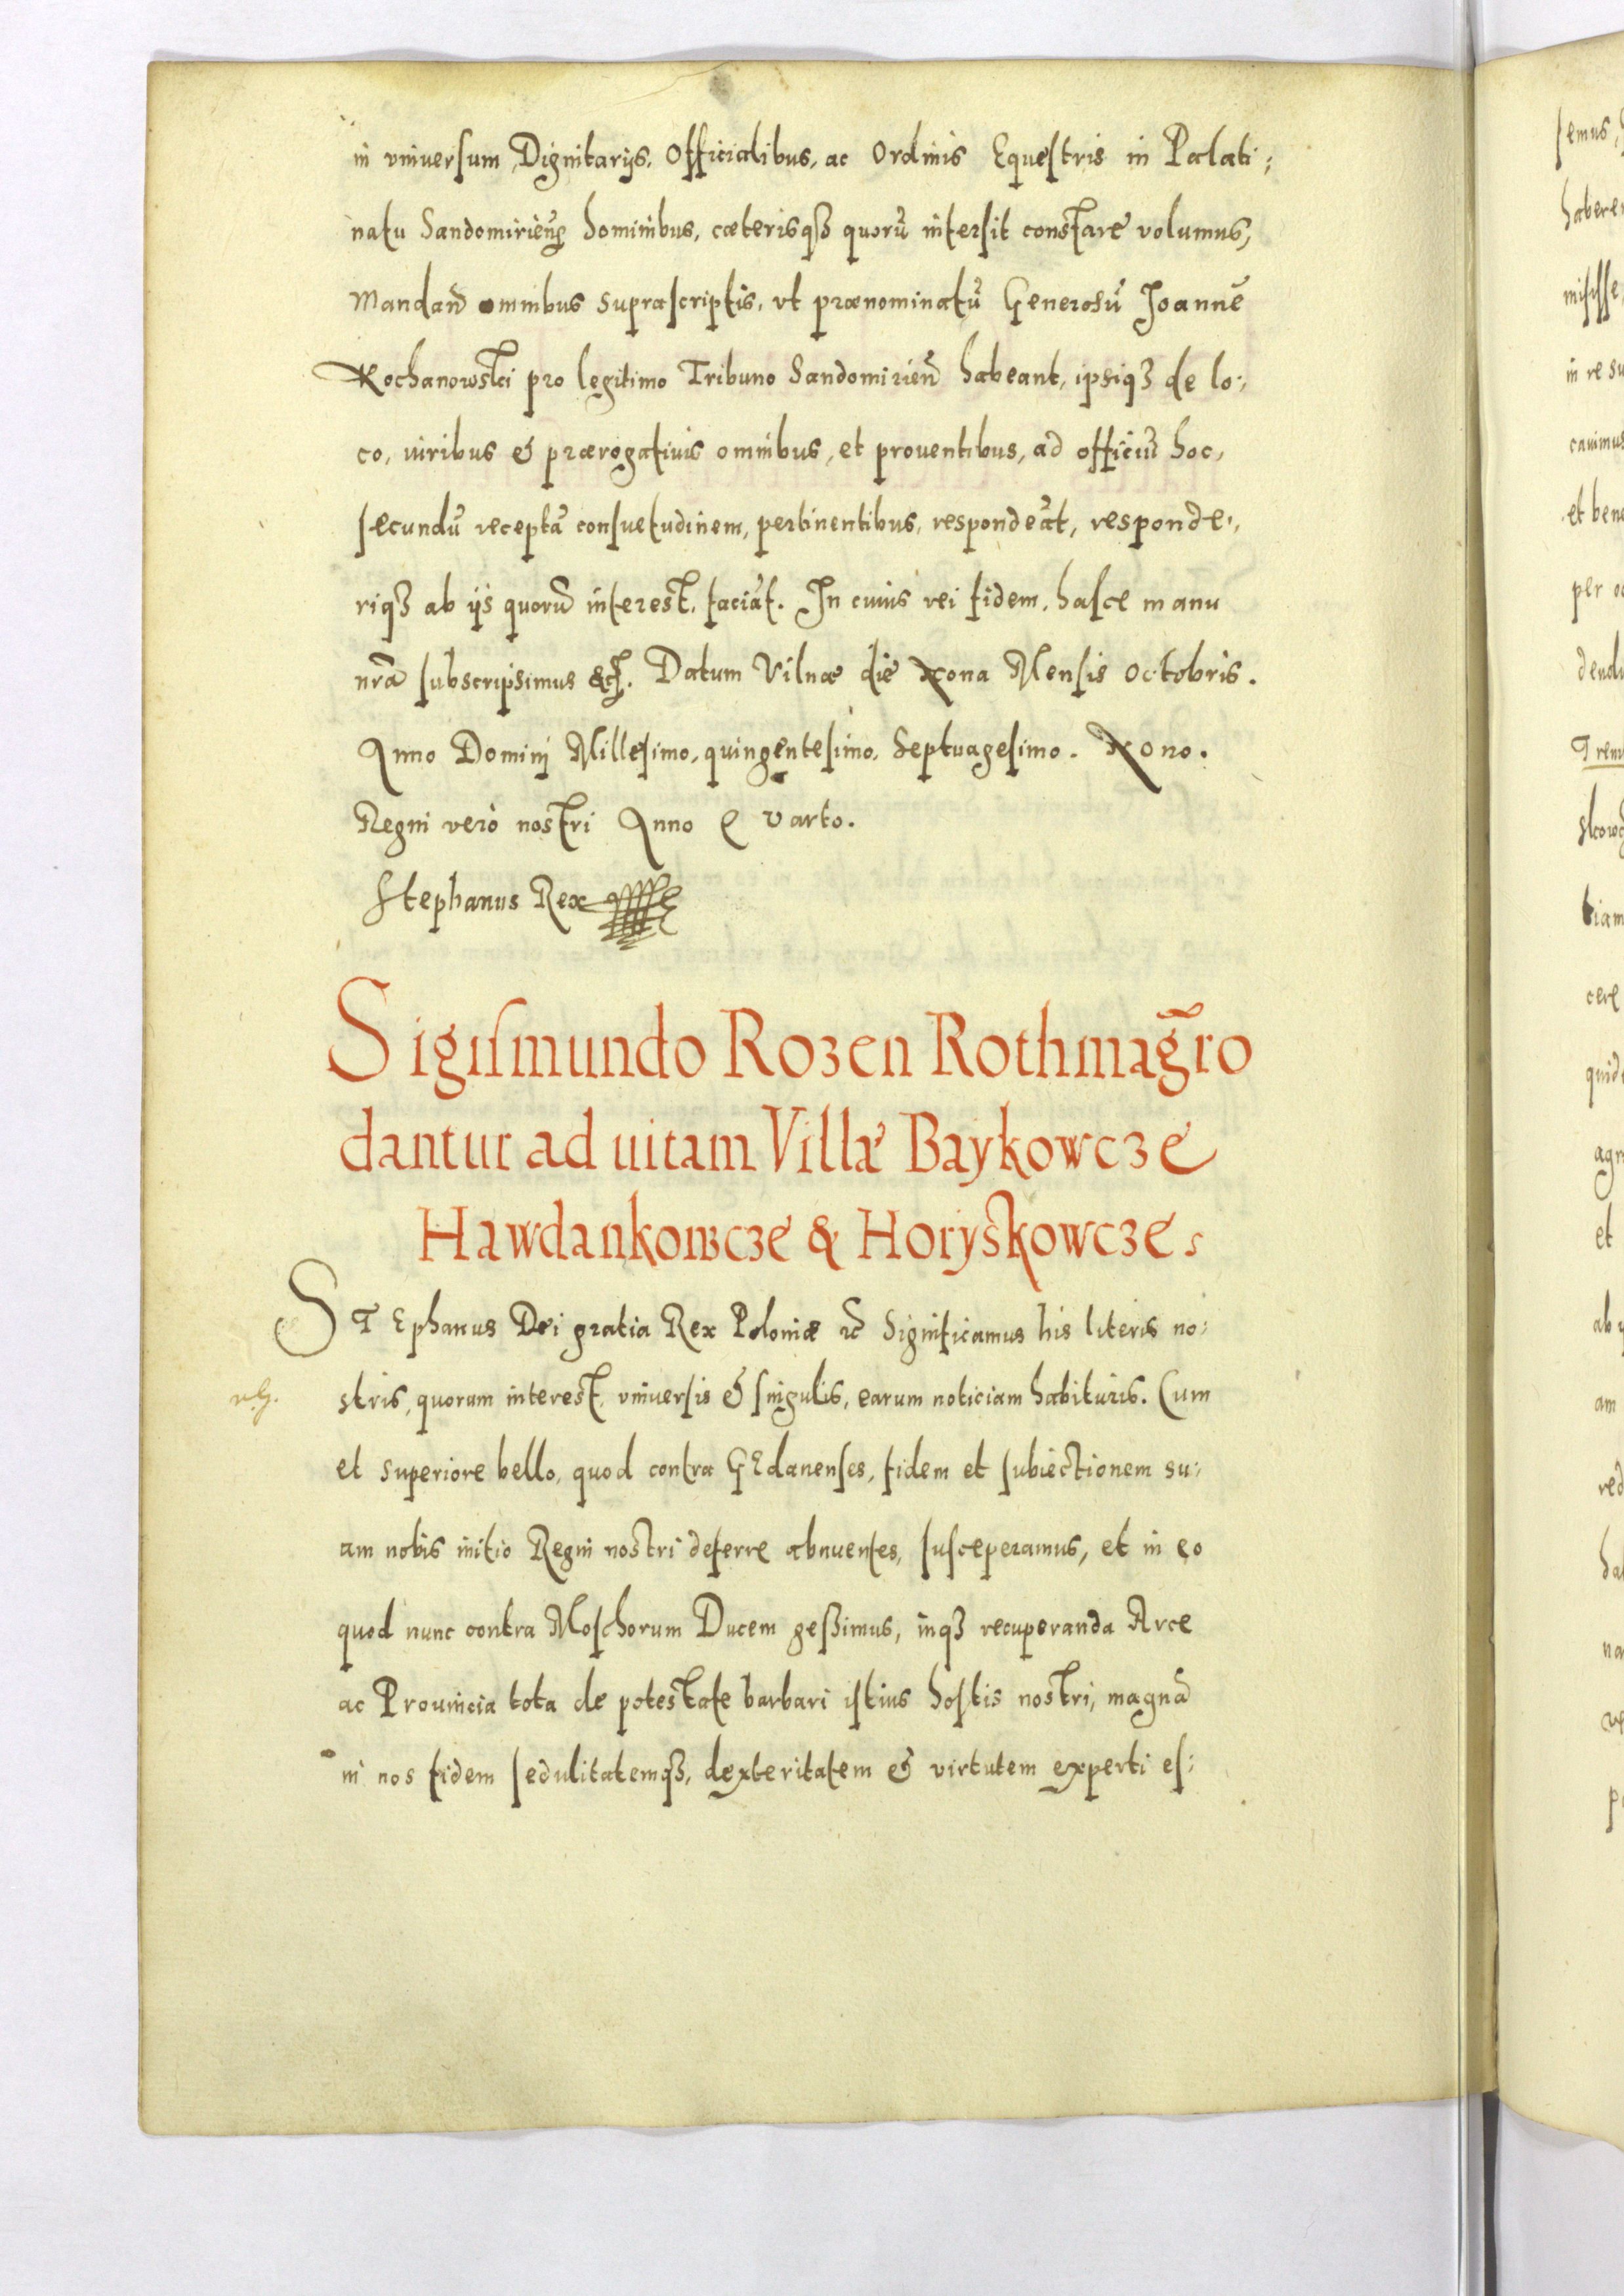 in vniuersum Dignitarijs, Officialibus, ac Ordinis Equestris in Palati:
natu Sandomirieñ hominibus, cæterisqꝫ quorũ intersit constare volumus,
Mandañ omnibus suprascriptis, vt prænominatũ Generosũ Joannẽ
Kochanowski pro legitimo Tribuno Sandomirieñ habeant, ipsiqꝫ de lo:
co, iuribus & prærogatiuis omnibus, et prouentibus, ad officiũ hoc,
secundũ receptã consuetudinem, pertinentibus, respondeãt, responde:
riqꝫ ab ijs quorũ interest, faciãt. In cuius rei fidem, hasce manu
nrã subscripsimus &c. Datum Vilnæ die Nona Mensis Octobris.
Anno Domini Millesimo, quingentesimo, Septuagesimo. Nono.
Regni vero nostri Anno Quarto.
Stephanus Rex
Sigismundo Rozen Rothmagr̃o
dantur ad uitam Villæ Baykowcze
Hawdankowcze & Horyskowcze
STEphanus Dei gratia Rex Poloniæ ꝛc̃ Significamus his literis no:
stris, quorum interest, vniuersis & singulis, earum noticiam habituris. Cum
et superiore bello, quod contra GEdanenses, fidem et subiectionem su:
am nobis initio Regni nostri deferre abnuentes, susceperamus, et in eo
quod nunc contra Moschorum Ducem geßimus, inqꝫ recuperanda Arce
ac Prouincia tota de potestate barbari istius hostis nostri, magnã
in nos fidem sedulitatemqꝫ, dexteritatem & virtutem experti es:
semus,
in re su
et bene
per
et
ab
am